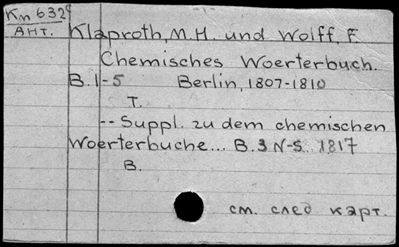 Кп 632⁹
АНТ.
Klaproth, M.H. und Wolff, F.
Chemisches Woerterbuch.
B.1-5 Berlin, 1807-1810
T.
-- Suppl. zu dem chemischen
Woerterbuche... B.3 N-S. 1817
B.
см. след карт.